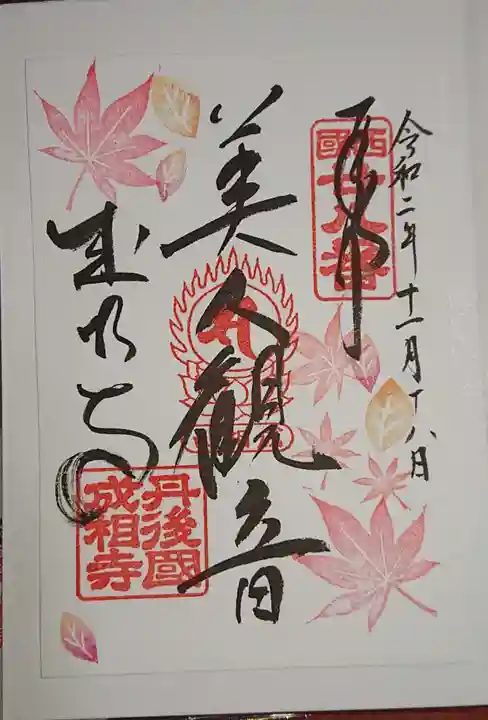 令和二年十一月十八日
奉拝
西國廿八番
美人観音
成相寺
丹後國成相寺